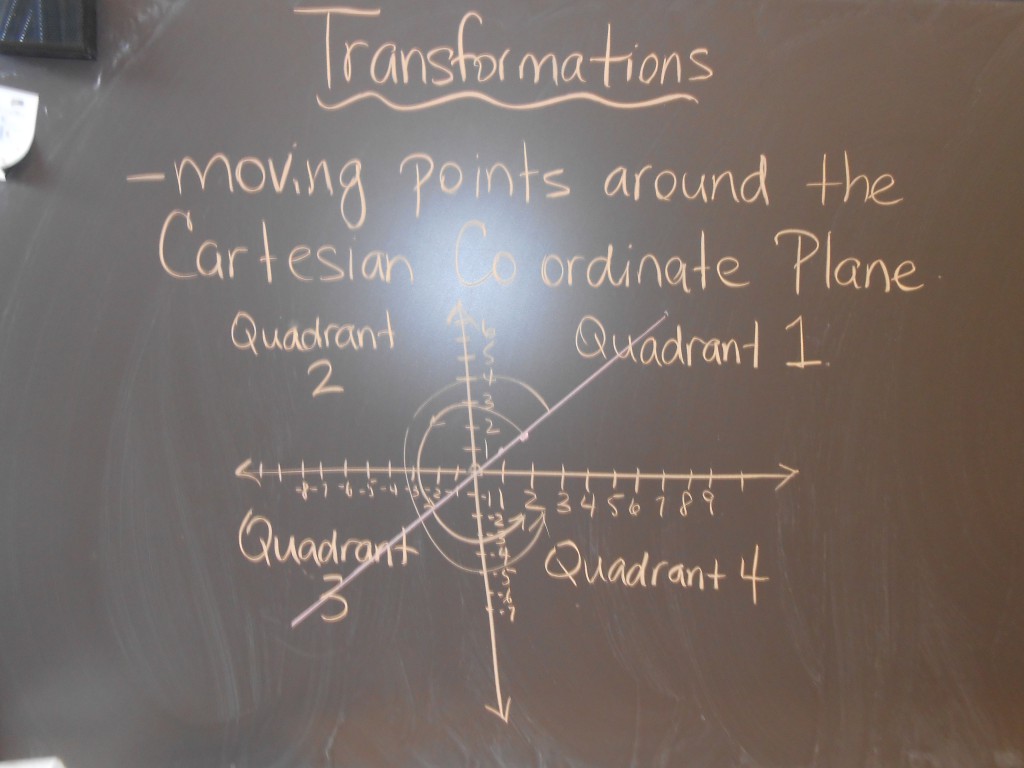 Transformations
-moving points around the
Cartesian Coordinate Plane
Quadrant
2
Quadrant 1.
6
5
4
3
2
1
-8 -7 -6 -5 -4 -3 -2 -1 1 2 3 4 5 6 7 8 9
Quadrant
3
Quadrant 4
-5
-6
-7